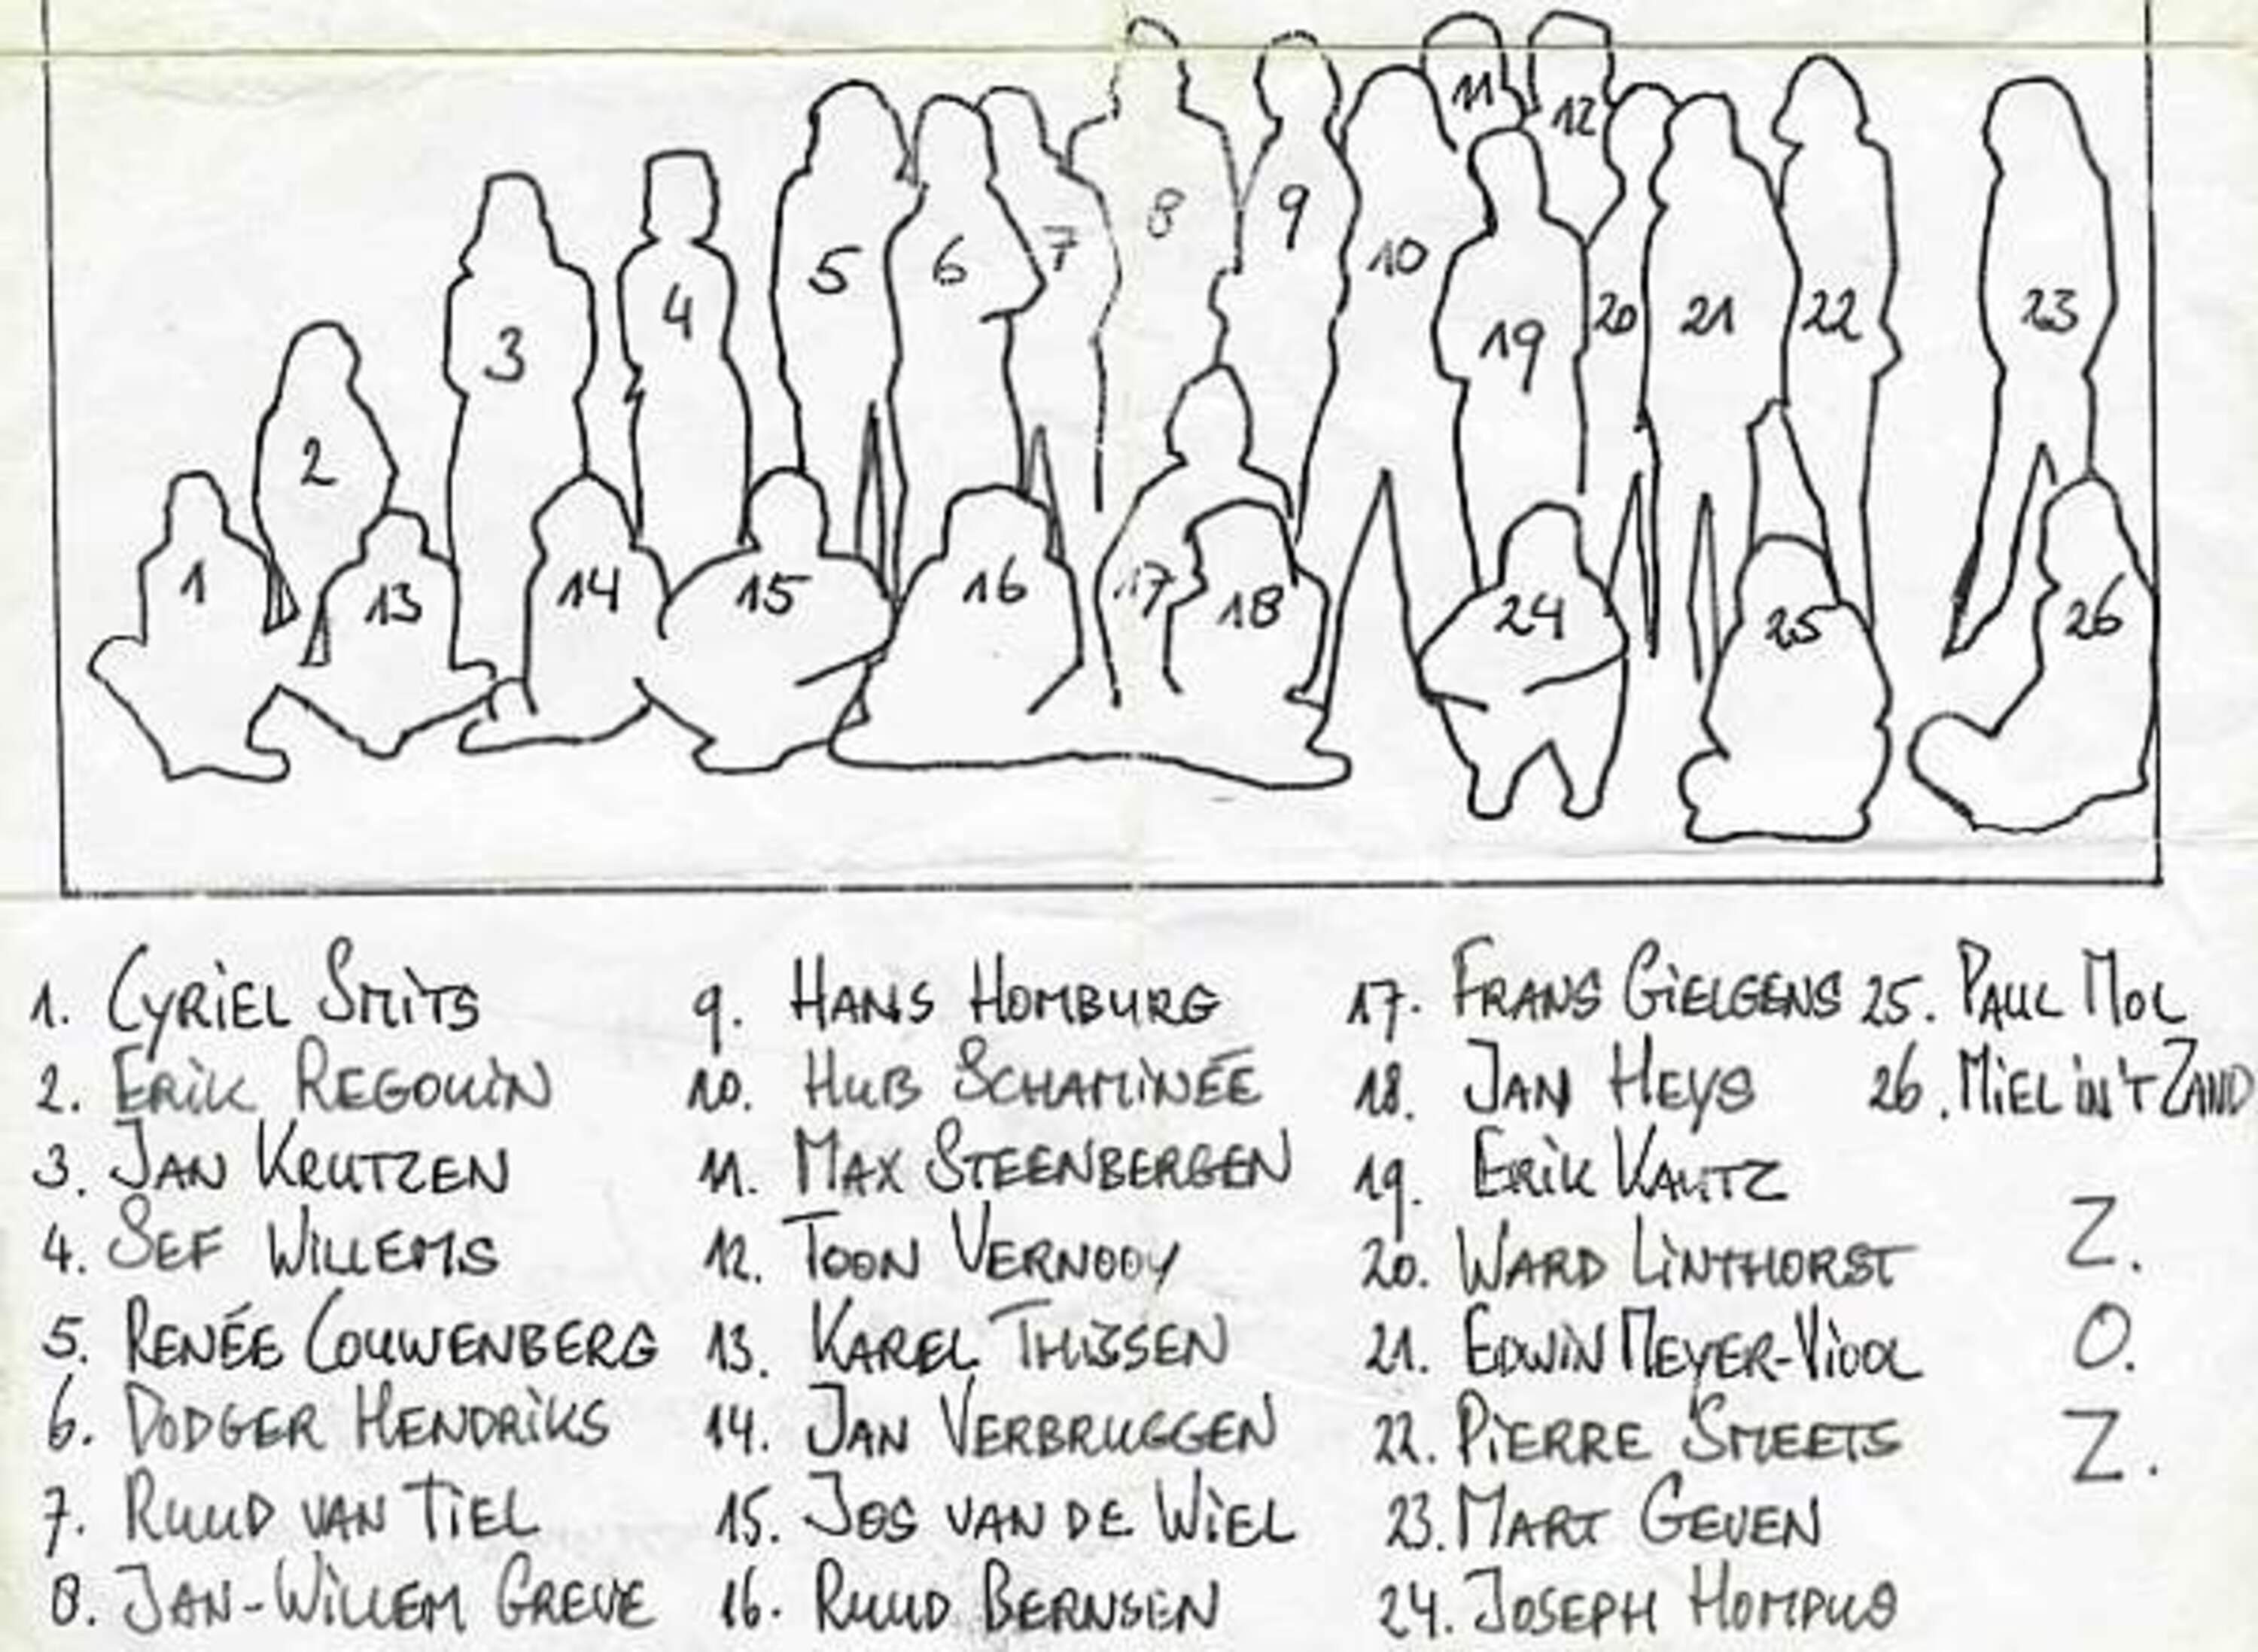 11
12
8
9
5
6
7
10
4
3
19
20
21
22
23
2
1
13
14
15
16
17
18
24
25
26
1. CYRIEL SMITS
2. ERIK REGOUIN
3. JAN KRUTZEN
4. SEF WILLEMS
5. RENÉE COUWENBERG
6. DODGER HENDRIKS
7. RUUD VAN TIEL
8. JAN-WILLEM GREVE
9. HANS HOMBURG
10. HUB SCHAMINÉE
11. MAX STEENBERGEN
12. TOON VERNOOY
13. KAREL THIJSSEN
14. JAN VERBRUGGEN
15. JOS VAN DE WIEL
16. RUUD BERNSEN
17. FRANS GIELGENS
18. JAN HEYS
19. ERIK KAUTZ
20. WARD LINTHORST
21. EDWIN MEYER-VIOOL
22. PIERRE SMEETS
23. MART GEVEN
24. JOSEPH HOMPUS
25. PAUL MOL
26. MIEL IN'T ZAND
Z.
O.
Z.